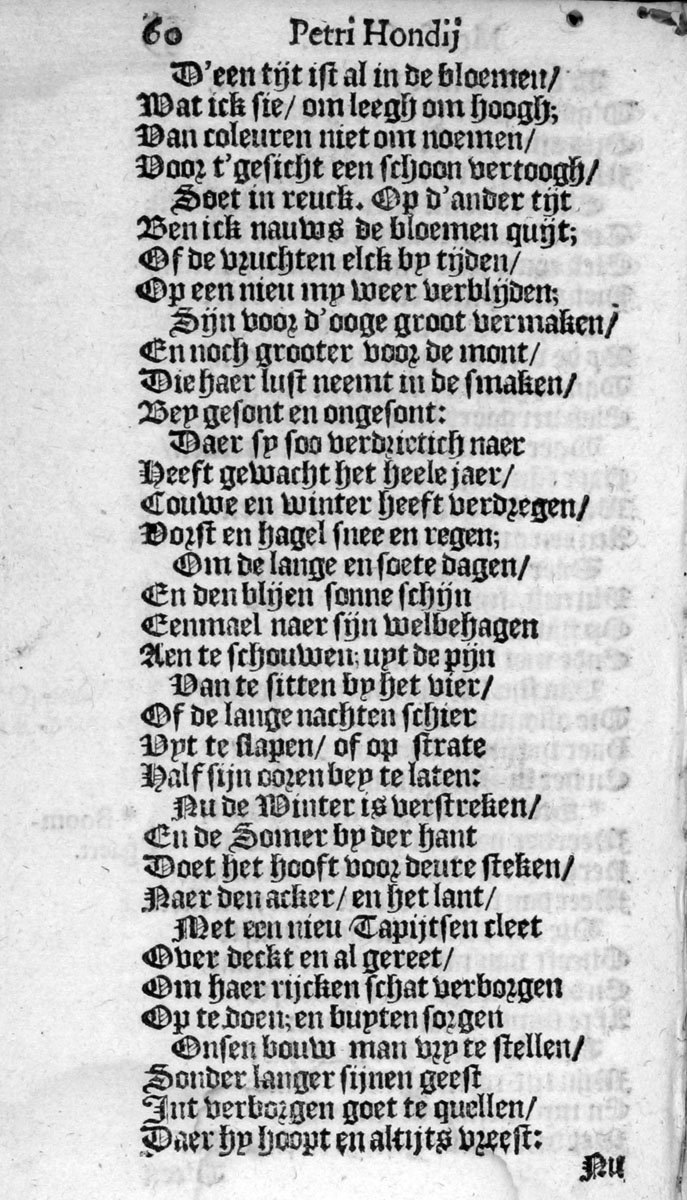 60 Petri Hondij
D'een tijt ist al in de bloemen/
Wat ick sie/ om leegh om hoogh;
Van coleuren niet om noemen/
Voor t'gesicht een schoon vertoogh/
Soet in reuck. Op d'ander tijt
Ben ick nauws de bloemen quijt;
Of de vruchten elck by tijden/
Op een nieu my weer verblijden;
Sijn voor d'ooge groot vermaken/
En noch grooter voor de mont/
Die haer lust neemt in de smaken/
Bey gesont en ongesont:
Daer sy soo verdrietich naer
Heeft gewacht het heele jaer/
Couwe en winter heeft verdregen/
Vorst en hagel snee en regen;
Om de lange en soete dagen/
En den blijen sonne schijn
Eenmael naer sijn welbehagen
Aen te schouwen; uyt de pijn
Van te sitten by het vier/
Of de lange nachten schier
Uyt te slapen/ of op strate
Half sijn ooren bey te laten:
Nu de Winter is verstreken/
En de Somer by der hant
Doet het hooft voor deure steken/
Naer den acker/ en het lant/
Met een nieu Tapijtsen cleet
Over deckt en al gereet/
Om haer rijcken schat verborgen
Op te doen; en buyten sorgen
Onsen bouw man vry te stellen/
Sonder langer sijnen geest
Int verborgen goet te quellen/
Daer hy hoopt en altijts vreest:
Nu